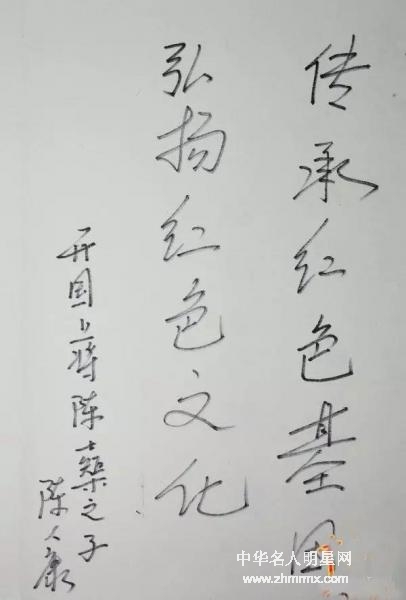 传承红色基因
弘扬红色文化
开国上将陈士榘之子
陈人康
中华名人明星网
www.zhmmx.com